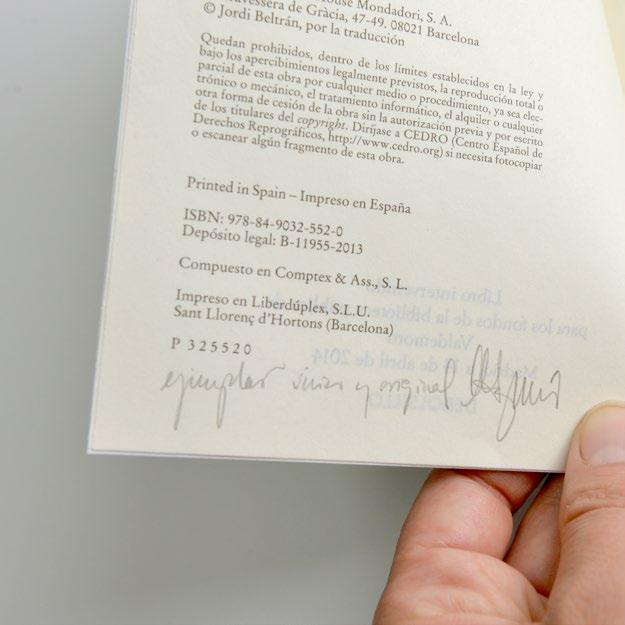 House Mondadori, S. A.
Travessera de Gràcia, 47-49. 08021 Barcelona
© Jordi Beltrán, por la traducción
Quedan prohibidos, dentro de los límites establecidos en la ley y
bajo los apercibimientos legalmente previstos, la reproducción total o
parcial de esta obra por cualquier medio o procedimiento, ya sea elec-
trónico o mecánico, el tratamiento informático, el alquiler o cualquier
otra forma de cesión de la obra sin la autorización previa y por escrito
de los titulares del copyright. Diríjase a CEDRO (Centro Español de
Derechos Reprográficos, http://www.cedro.org) si necesita fotocopiar
o escanear algún fragmento de esta obra.
Printed in Spain – Impreso en España
ISBN: 978-84-9032-552-0
Depósito legal: B-11955-2013
Compuesto en Comptex & Ass., S. L.
Impreso en Liberdúplex, S.L.U.
Sant Llorenç d'Hortons (Barcelona)
P 325520
ejemplar único y original
Libro intervenido
para los fondos de la biblioteca
Valdemoro
de abril de 2014